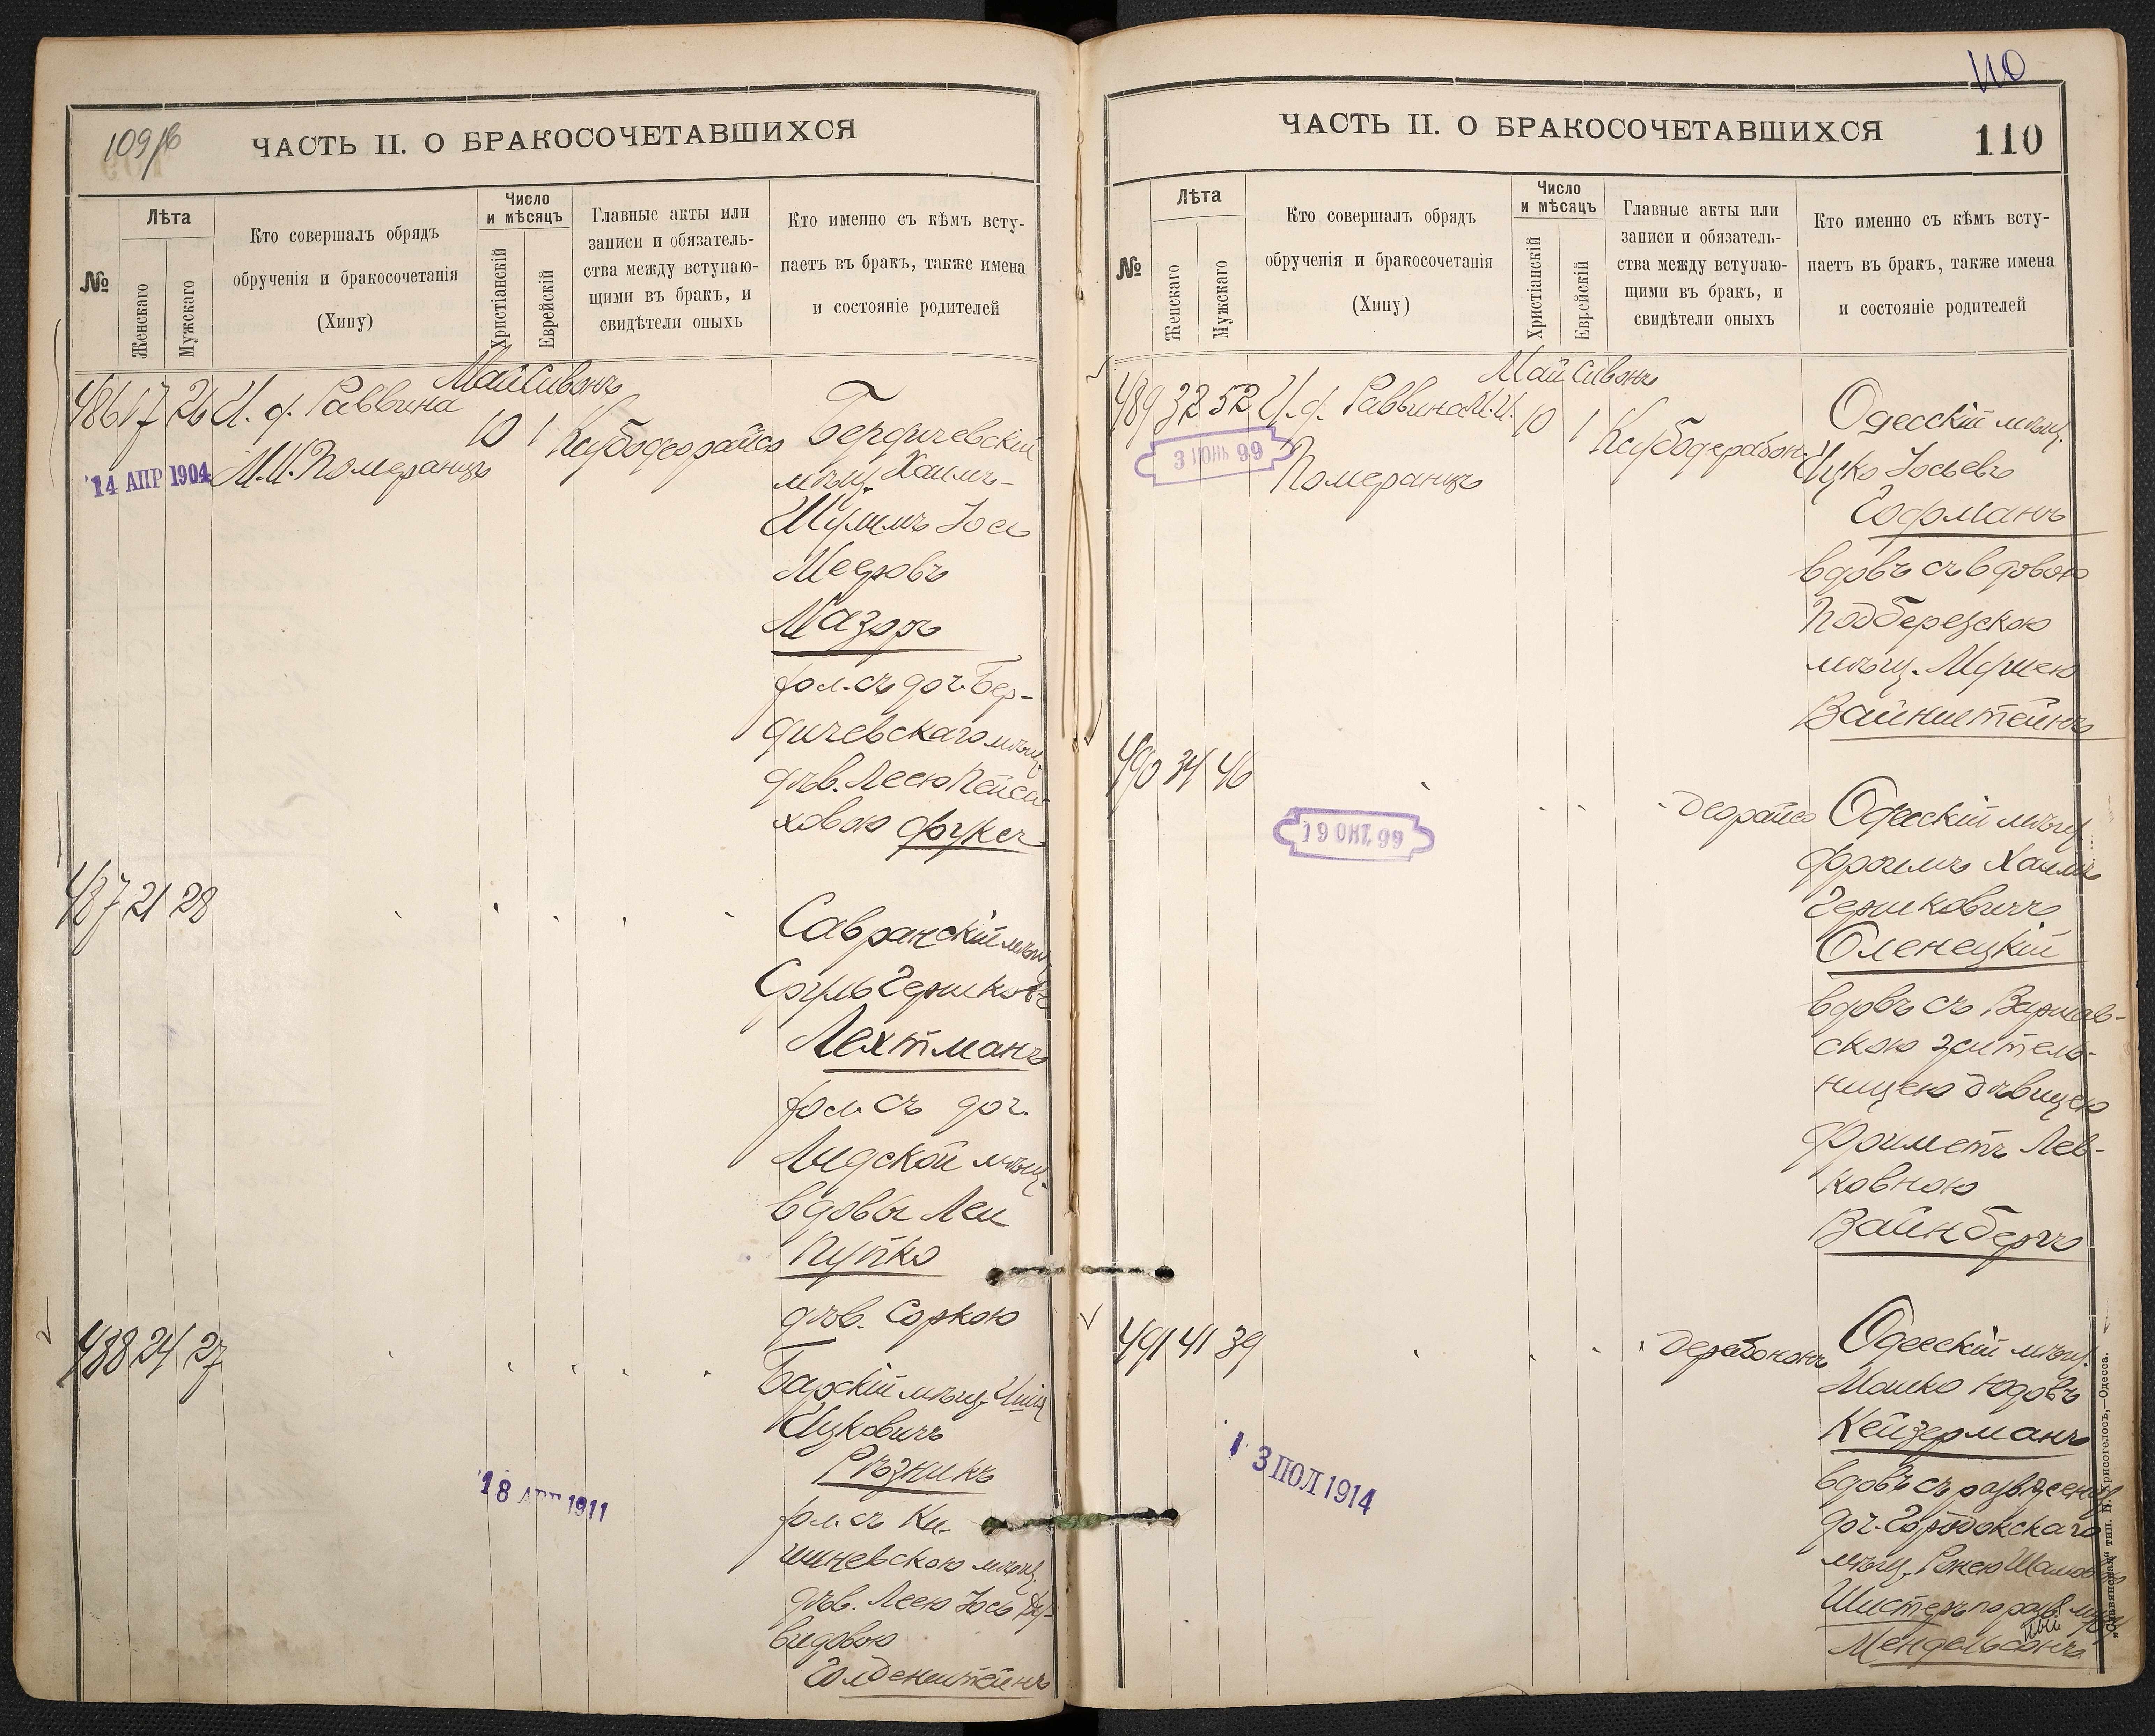 109/б
ЧАСТЬ II. О БРАКОСОЧЕТАВШИХСЯ
№
Лѣта
Женскаго
Мужскаго
Кто совершалъ обрядъ
обрученія и бракосочетанія
(Хипу)
Число
и мѣсяцъ
Христіанскій
Еврейскій
Главные акты или
записи и обязатель-
ства между вступаю-
щими въ бракъ, и
свидѣтели оныхъ
Кто именно съ кѣмъ всту-
паетъ въ бракъ, также имена
и состояніе родителей
Май Сивонъ
486 17 26 И. д. Раввина
М.И. Померанцъ
10 1 Кисубодеорайсо
14 АПР 1904
Бердичевскій
мѣщ. Хаимъ-
Шулимъ Іось
Мееровъ
Мазоръ
хол. съ доч. Бер-
дичевскаго мѣщ.
дѣв. Леею Пейса-
ховою Фуксъ
487 21 28
Савранскій мѣщ.
Сруль Гершковъ
Лехтманъ
хол. съ доч.
Лидской мѣщ.
вдовы Леи
Пупко
дѣв. Соркою
488 24 27
Барскій мѣщ.
Ицковичъ
Рѣзникъ
хол. съ Ки-
шиневскою мѣщ.
дѣв. Леею Іось Ду-
видовою
Голденштейнъ
18 АПР 1911
110
ЧАСТЬ II. О БРАКОСОЧЕТАВШИХСЯ
110
№
Лѣта
Женскаго
Мужскаго
Кто совершалъ обрядъ
обрученія и бракосочетанія
(Хипу)
Число
и мѣсяцъ
Христіанскій
Еврейскій
Главные акты или
записи и обязатель-
ства между вступаю-
щими въ бракъ, и
свидѣтели оныхъ
Кто именно съ кѣмъ всту-
паетъ въ бракъ, также имена
и состояніе родителей
Май Сивонъ
489 32 52 И. д. Раввина М.И.
Померанцъ
10 1 Кисубодерабон.
3 ІЮНЬ 99
Одесскій мѣщ.
Ицко Іосьевъ
Гофманъ
вдовъ съ вдовою
Подберезскою
мѣщ. Мушею
Вайнштейнъ
490 34 46
19 ОКТ. 99
Деорайсо
Одесскій мѣщ.
Фроимъ Хаимъ
Гершковичъ
Оленецкій
вдовъ съ Варшав-
скою жатель-
ницею дѣвицею
Фриметъ Лев-
ковною
Вайнбергъ
491 41 39
Дерабононъ
13 ІЮЛ 1914
Одесскій мѣщ.
Мошко Юдовъ
Кейзерманъ
вдовъ съ разведеною
доч. Городокскаго
мѣщ.
Шистеръ по разв. мужу
Мендельсонъ
„Славянская“ тип. Н. Хрисогелосъ,—Одесса.